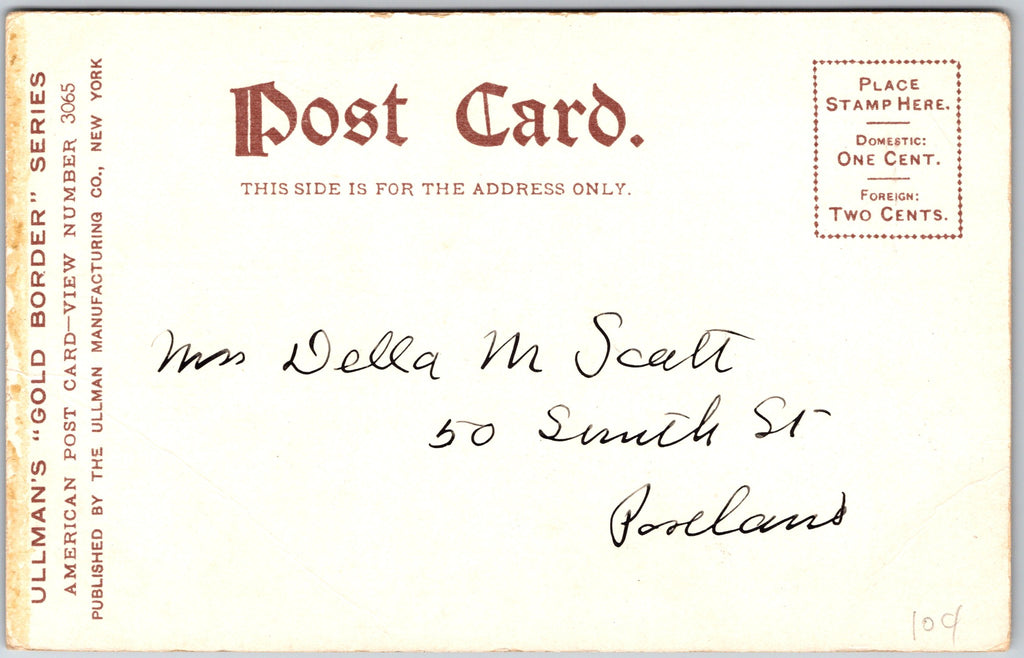 ULLMAN'S "GOLD BORDER" SERIES
AMERICAN POST CARD—VIEW NUMBER 3065
PUBLISHED BY THE ULLMAN MANUFACTURING CO., NEW YORK
Post Card.
THIS SIDE IS FOR THE ADDRESS ONLY.
PLACE
STAMP HERE.
DOMESTIC:
ONE CENT.
FOREIGN:
TWO CENTS.
Della M Scott
50 Smith St
Portland
10¢